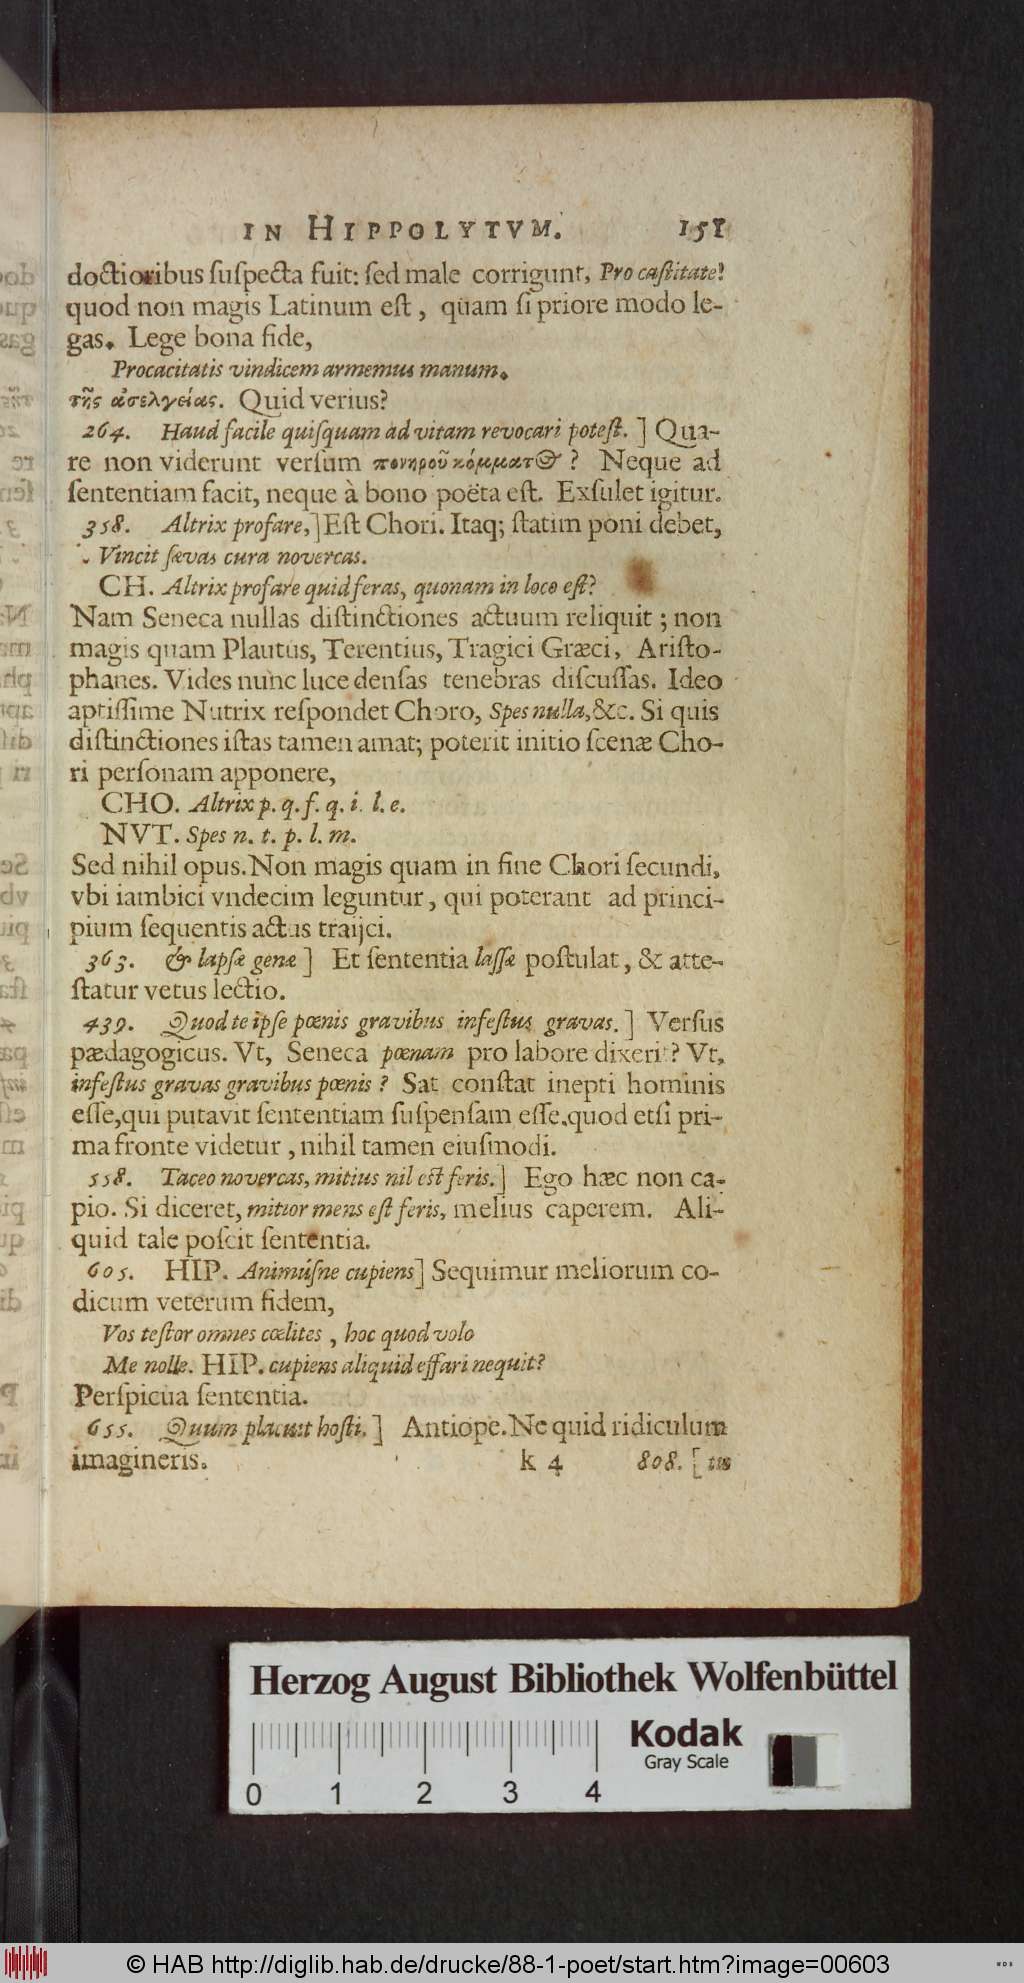 IN HIPPOLYTVM. 151
doctioribus ſuſpecta fuit: ſed male corrigunt, Pro caſtitate!
quod non magis Latinum eſt, quam ſi priore modo le-
gas. Lege bona fide,
Procacitatis vindicem armemus manum.
τῆς ἀσελγείας. Quid verius?
264. Haud facile quiſquam ad vitam revocari poteſt.] Qua-
re non viderunt verſum πονηροῦ κόμματος? Neque ad
ſententiam facit, neque à bono poëta eſt. Exſulet igitur.
358. Altrix profare,] Eſt Chori. Itaq; ſtatim poni debet,
Vincit ſævas cura novercas.
CH. Altrix profare quid feras, quonam in loco eſt?
Nam Seneca nullas diſtinctiones actuum reliquit; non
magis quam Plautus, Terentius, Tragici Græci, Ariſto-
phanes. Vides nunc luce denſas tenebras diſcuſſas. Ideo
aptiſſime Nutrix reſpondet Choro, Spes nulla, &c. Si quis
diſtinctiones iſtas tamen amat; poterit initio ſcenæ Cho-
ri perſonam apponere,
CHO. Altrix p. q. f. q. i. l. e.
NVT. Spes n. t. p. l. m.
Sed nihil opus. Non magis quam in fine Chori ſecundi,
vbi iambici vndecim leguntur, qui poterant ad princi-
pium ſequentis actus traijci.
363. & lapſæ genæ] Et ſententia laſſæ poſtulat, & atte-
ſtatur vetus lectio.
439. Quod te ipſe pœnis gravibus infeſtus gravas.] Verſus
pædagogicus. Vt, Seneca pœnam pro labore dixerit? Vt,
infeſtus gravas gravibus pœnis? Sat conſtat inepti hominis
eſſe, qui putavit ſententiam ſuſpenſam eſſe. quod etſi pri-
ma fronte videtur, nihil tamen eiuſmodi.
558. Taceo novercas, mitius nil eſt feris.] Ego hæc non ca-
pio. Si diceret, mitior mens eſt feris, melius caperem. Ali-
quid tale poſcit ſententia.
605. HIP. Animúſne cupiens] Sequimur meliorum co-
dicum veterum fidem,
Vos teſtor omnes cœlites, hoc quod volo
Me nolle. HIP. cupiens aliquid effari nequit?
Perſpicua ſententia.
655. Quum placuit hoſti.] Antiope. Ne quid ridiculum
imagineris. k 4 808. [tus
Herzog August Bibliothek Wolfenbüttel
Kodak
Gray Scale
0 1 2 3 4
© HAB http://diglib.hab.de/drucke/88-1-poet/start.htm?image=00603